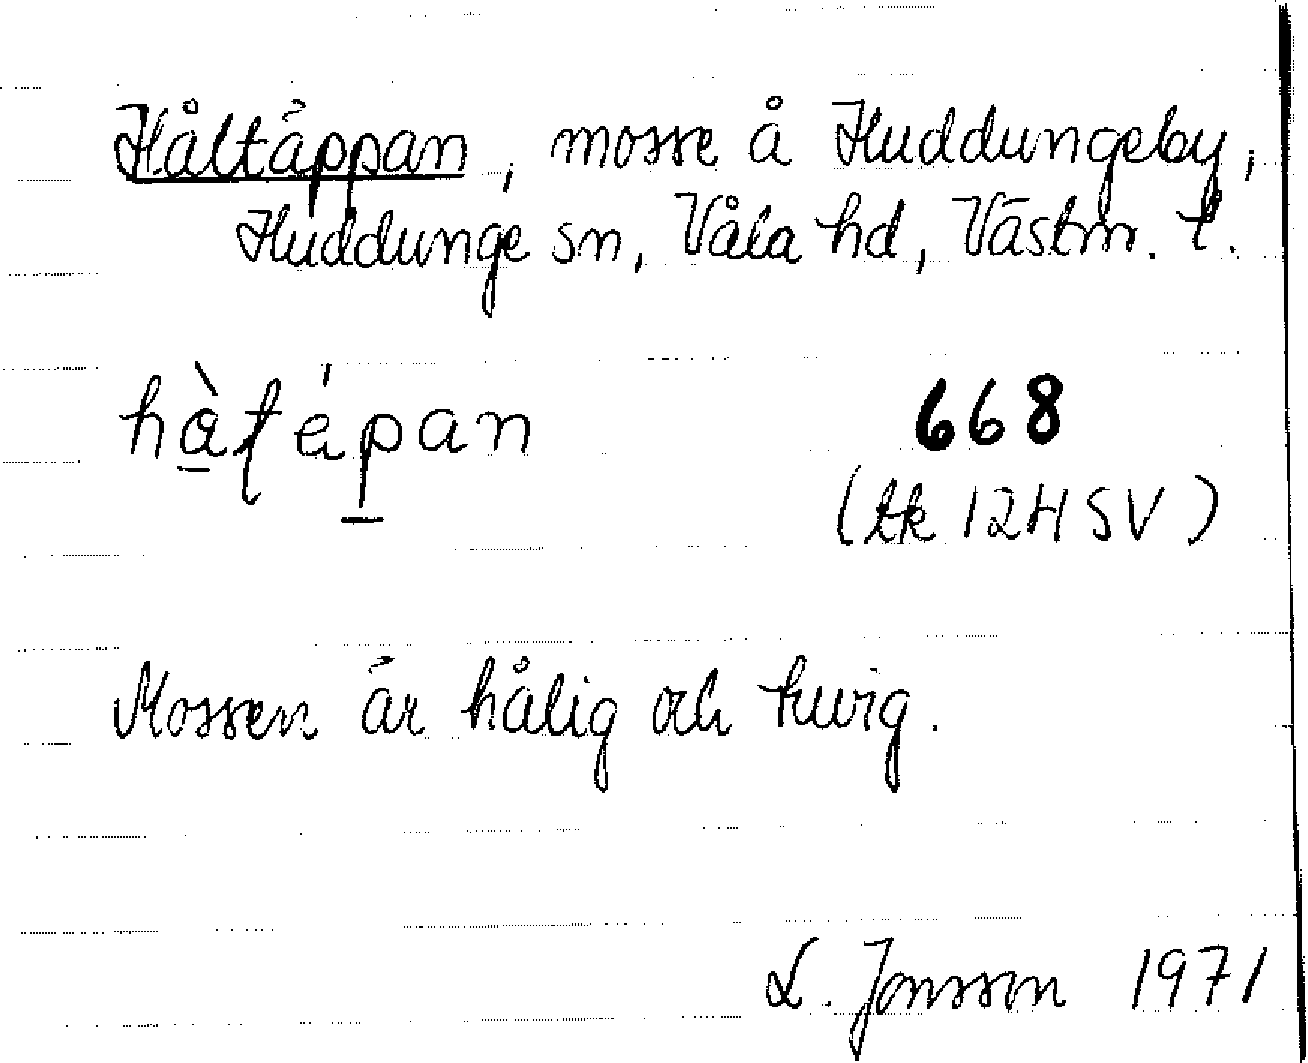 Håltäppan, mosse å Huddungeby,
Huddunge sn, Våla hd, Västm. l.
668
(ek 12H SV)
Mossen är hålig och tuvig.
L. Jonsson 1971